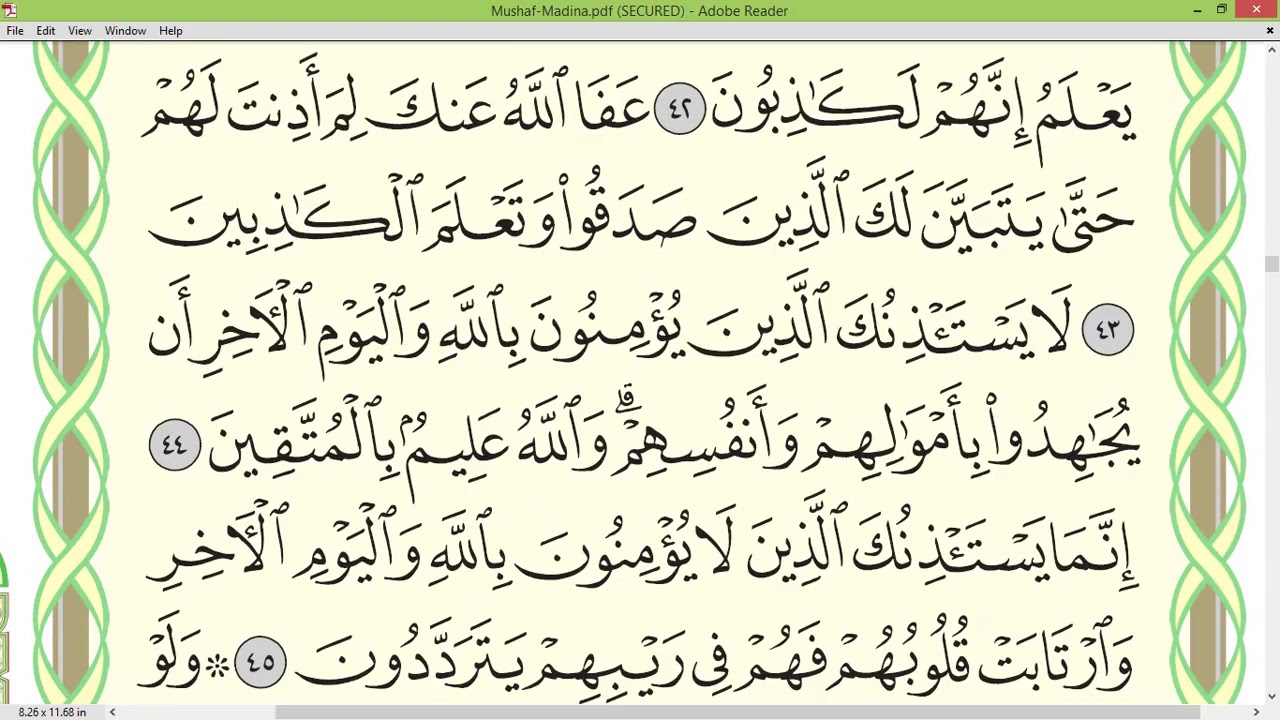 Mushaf-Madina.pdf (SECURED) - Adobe Reader
File Edit View Window Help
يَعْلَمُ إِنَّهُمْ لَكَٰذِبُونَ ٤٢ عَفَا ٱللَّهُ عَنكَ لِمَ أَذِنتَ لَهُمْ
حَتَّىٰ يَتَبَيَّنَ لَكَ ٱلَّذِينَ صَدَقُوا۟ وَتَعْلَمَ ٱلْكَٰذِبِينَ
٤٣ لَا يَسْتَـْٔذِنُكَ ٱلَّذِينَ يُؤْمِنُونَ بِٱللَّهِ وَٱلْيَوْمِ ٱلْـَٔاخِرِ أَن
يُجَٰهِدُوا۟ بِأَمْوَٰلِهِمْ وَأَنفُسِهِمْ ۗ وَٱللَّهُ عَلِيمٌۢ بِٱلْمُتَّقِينَ ٤٤
إِنَّمَا يَسْتَـْٔذِنُكَ ٱلَّذِينَ لَا يُؤْمِنُونَ بِٱللَّهِ وَٱلْيَوْمِ ٱلْـَٔاخِرِ
وَٱرْتَابَتْ قُلُوبُهُمْ فَهُمْ فِى رَيْبِهِمْ يَتَرَدَّدُونَ ٤٥ ۞ وَلَوْ
8.26 x 11.68 in